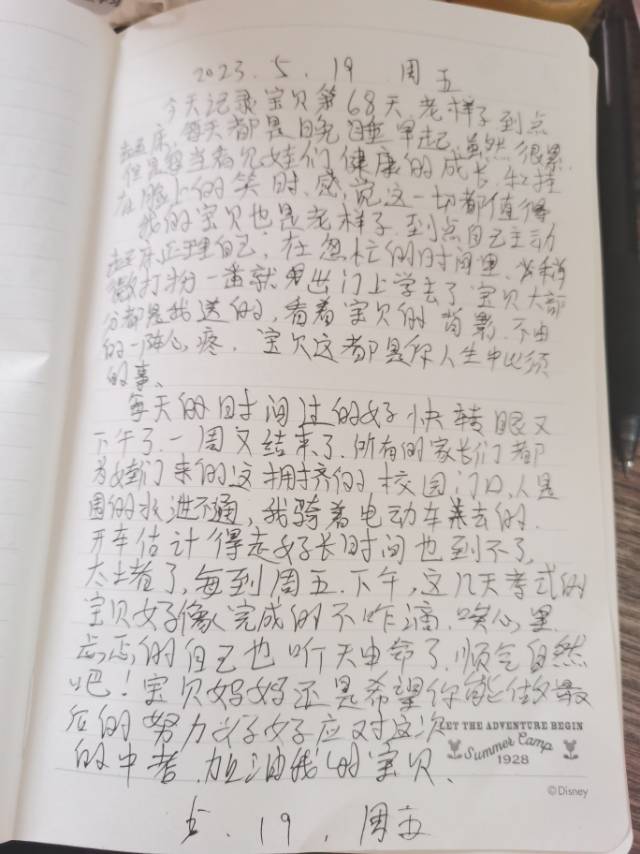 2023.5.19 周五
今天记录宝贝第68天 老样子到点
起床,每天都是晚睡早起,虽然很累
但是每当看见娃们健康的成长 和挂
在脸上的笑时、感觉这一切都值得
我的宝贝也是老样子 到点自己主动
起床正理自己,在忽忙的时间里,
打扮一番就出门上学去了 宝贝大部
分都是我送的,看着宝贝的背影,不由
的一阵心疼. 宝贝这都是你人生中必须
的事、
每天的时间过的好快转眼又
下午了.一周又结束了.所有的家长们都
为娃们来的这拥挤的校园门口,人是
围的水泄不通,我骑着电动车来去的.
开车估计得走好长时间也到不了,
太堵了,每到周五.下午,这几天考试的
宝贝好像完成的不咋滴.唉心里
的但已也听天由命了.顺气自然
吧!宝贝妈妈还是希望你能做最
后的努力 好好应对这次
的中考 加油我的宝贝、
LET THE ADVENTURE BEGIN
Summer Camp
1928
©Disney
5.19.周五